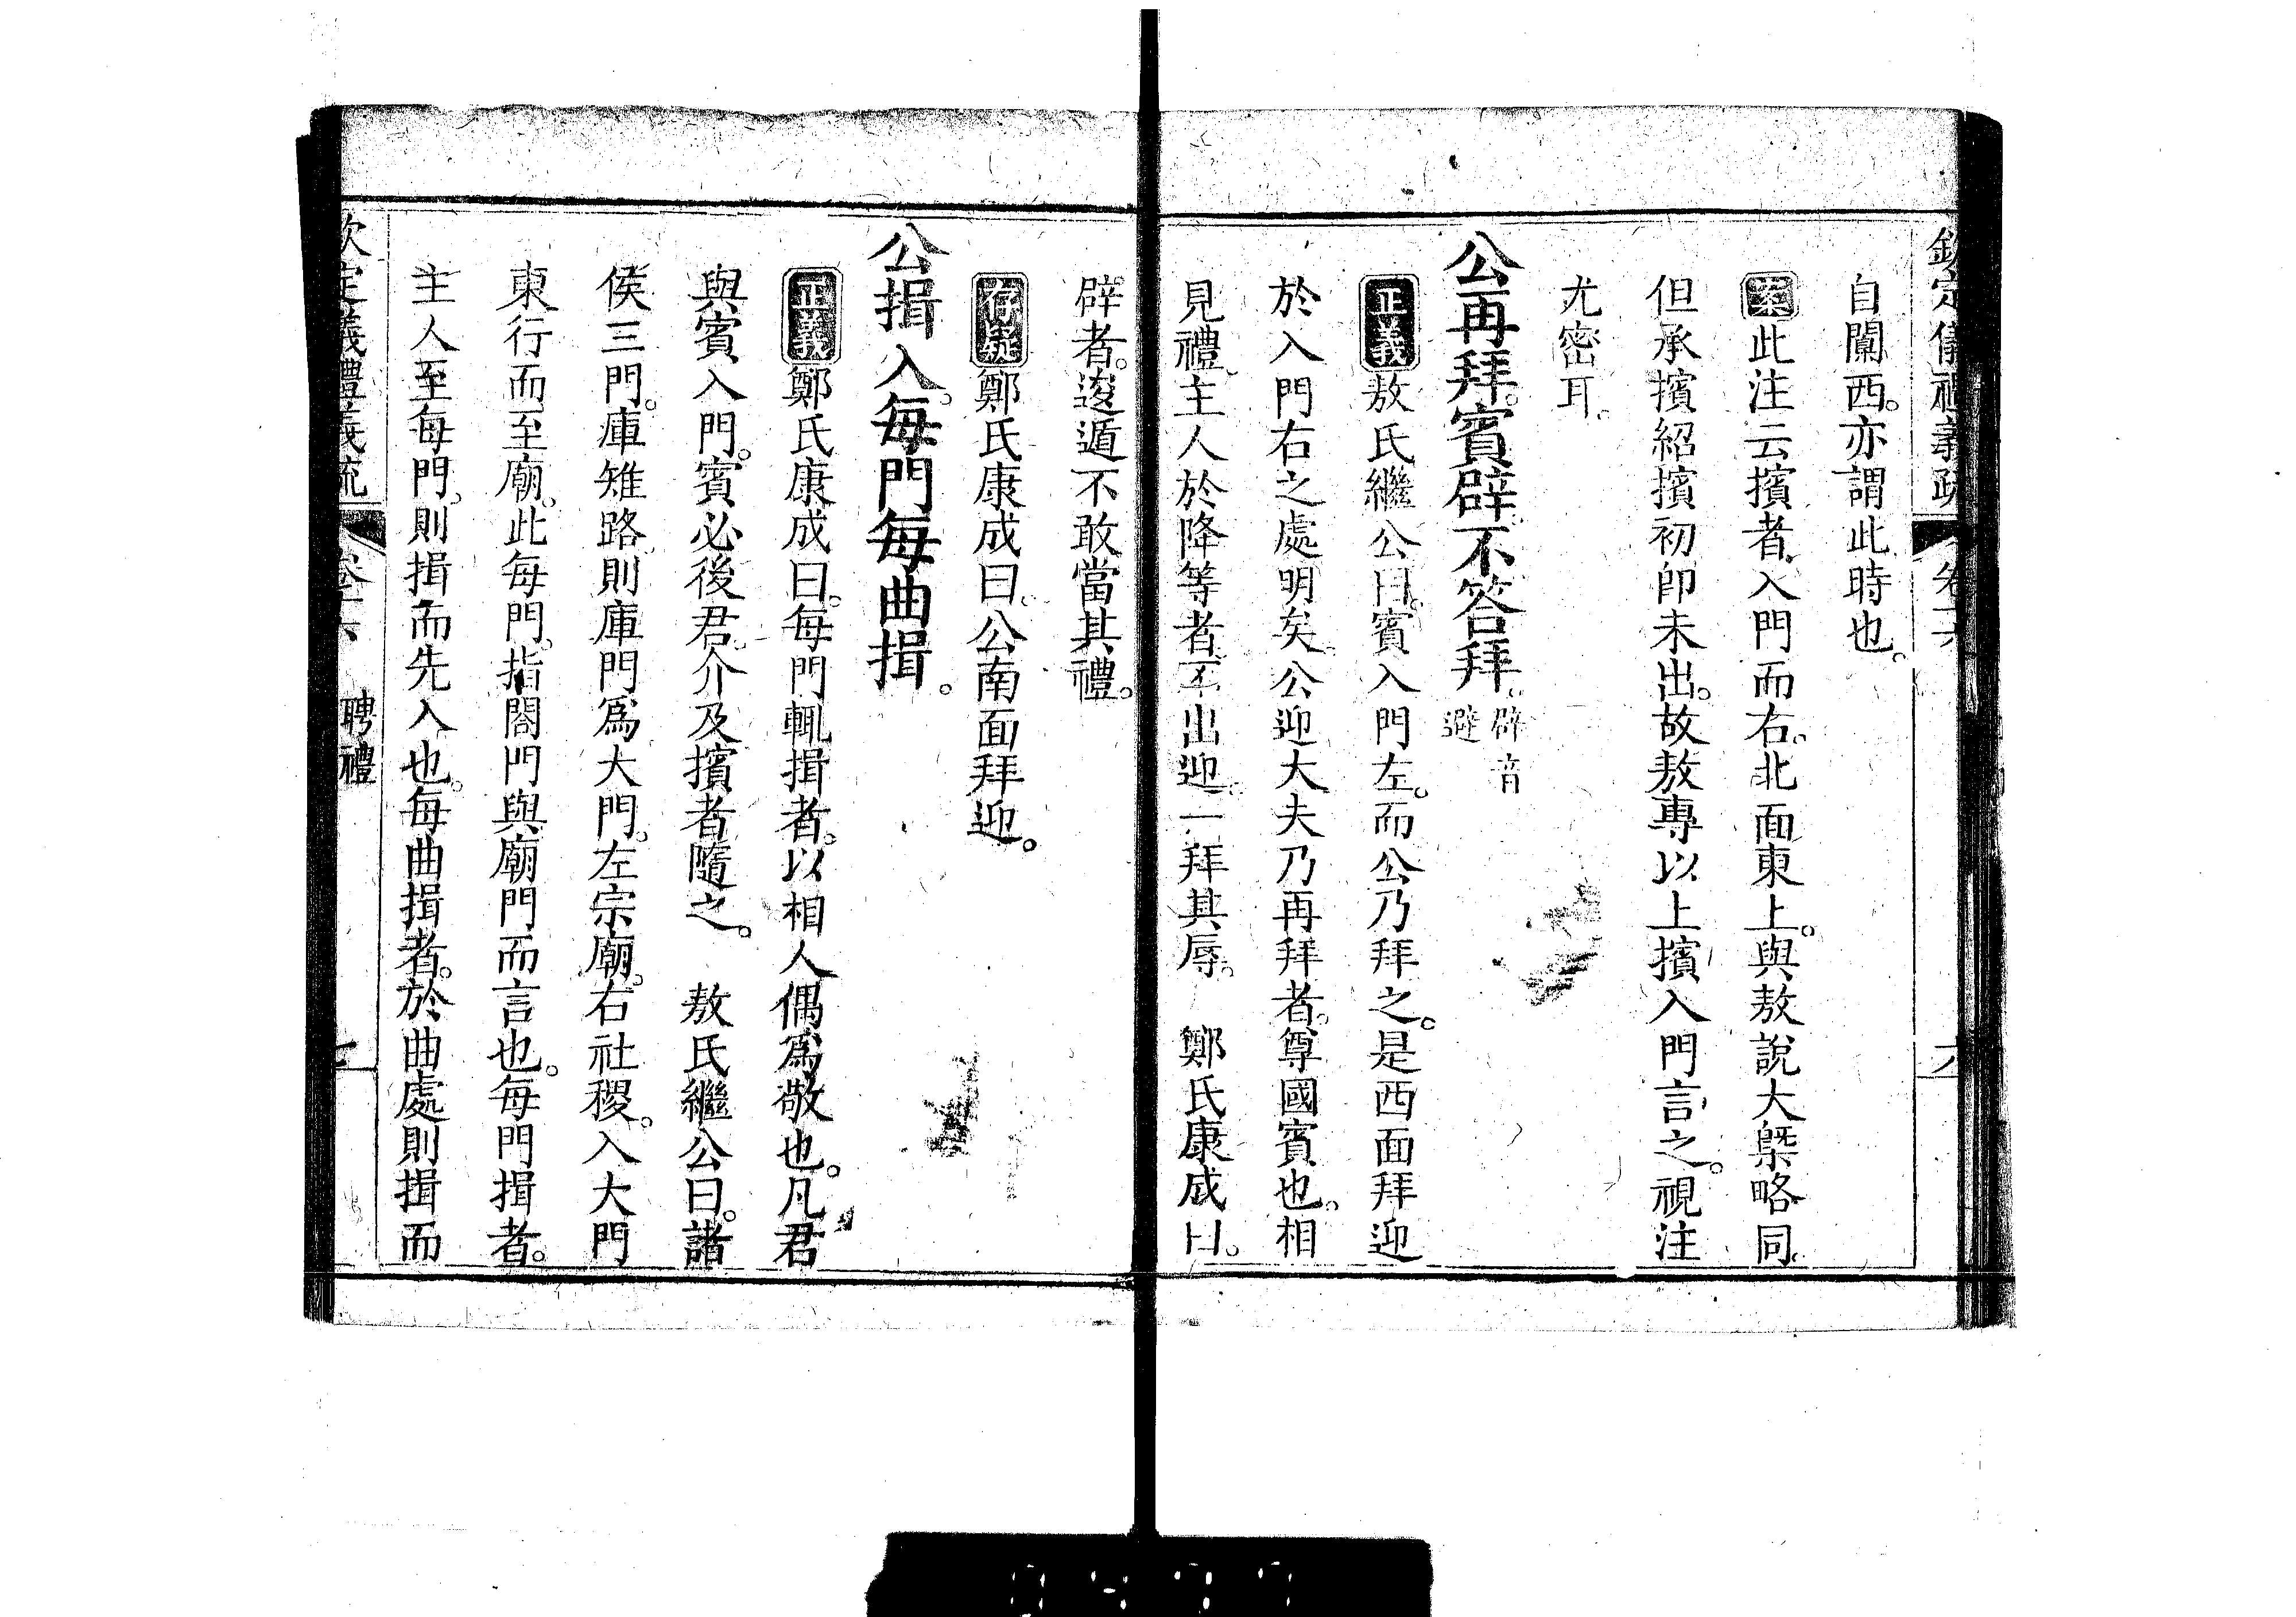 欽定儀禮義疏 卷十六
自闑西。亦謂此時也。
案此注云擯者入門而右。北面東上。與敖說大槩略同。
但承擯紹擯初卽未出。故敖專以上擯入門言之。視注
尤密耳。
公再拜。賓辟不答拜。辟音避
正義敖氏繼公曰。賓入門左。而公乃拜之。是西面拜迎
於入門右之處明矣。公迎大夫乃再拜者。尊國賓也。相
見禮。主人於降等者不出迎。一拜其辱。 鄭氏康成曰。
辟者。逡遁不敢當其禮。
存疑鄭氏康成曰。公南面拜迎。
公揖入。每門每曲揖。
正義鄭氏康成曰。每門輒揖者。以相人偶爲敬也。凡君
與賓入門。賓必後君。介及擯者隨之。 敖氏繼公曰。諸
侯三門。庫雉路。則庫門爲大門。左宗廟。右社稷。入大門
東行而至廟。此每門。指閤門與廟門而言也。每門揖者。
主人至每門。則揖而先入也。每曲揖者。於曲處則揖而
欽定儀禮義疏 卷十六 聘禮 七